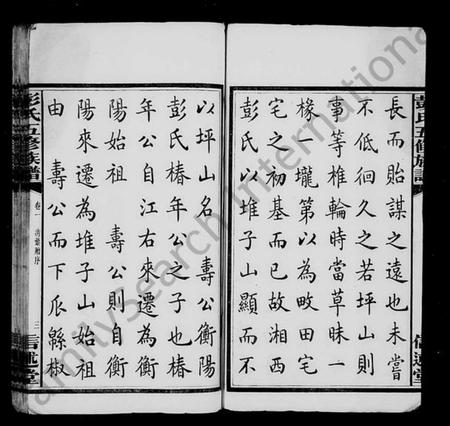 彭氏五修族譜
信述堂
長而貽謀之遠也未嘗
不低徊久之若坪山則
事等椎輪時當草昧一
椽一壠第以為畋田宅
宅之初基而已故湘西
彭氏以堆子山顯而不
以坪山名 壽公衡陽
彭氏椿年公之子也椿
年公自江右來遷為衡
陽始祖 壽公則自衡
陽來遷為堆子山始祖
由 壽公而下瓜緜椒
彭氏五修族譜
卷一
序
三
信述堂
FamilySearch International